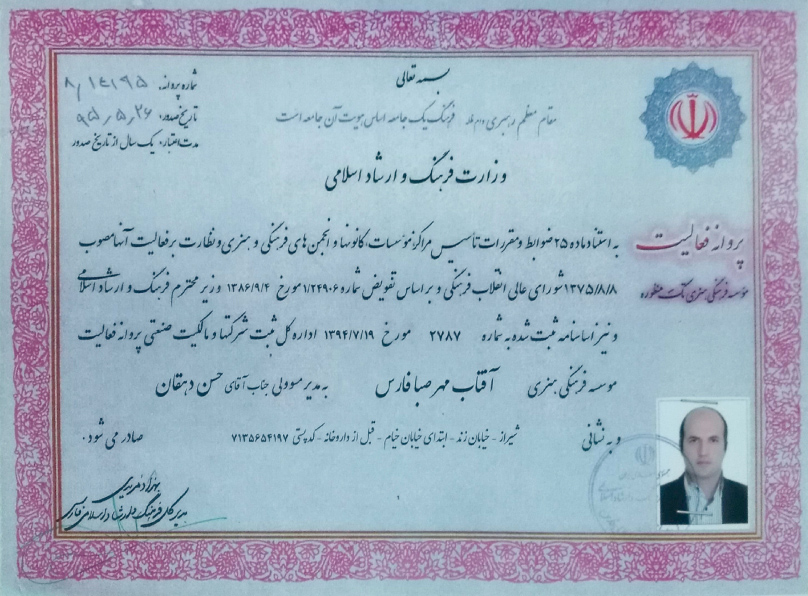 بسمه تعالی
شماره پروانه: ۸/۱۴۱۹۵
تاریخ صدور: ۹۵/۵/۲۶
مدت اعتبار: یک سال از تاریخ صدور
مقام معظم رهبری فرهنگ یک جامعه اساس هویت آن جامعه است
وزارت فرهنگ و ارشاد اسلامی
پروانه فعالیت
موسسه فرهنگی هنری تک منظوره
به استناد ماده ۲۵ ضوابط و مقررات تأسیس مراکز، مؤسسات، کانونها و انجمن های فرهنگی و هنری و نظارت بر فعالیت آنها مصوب
۱۳۷۵/۸/۸ شورای عالی انقلاب فرهنگی و بر اساس تفویض شماره ۱/۲۴۹۰۶ مورخ ۱۳۸۶/۹/۴ وزیر محترم فرهنگ و ارشاد اسلامی
و نیز اساسنامه ثبت شده به شماره ۲۷۸۷ مورخ ۱۳۹۴/۷/۱۹ اداره کل ثبت شرکتها و مالکیت صنعتی پروانه فعالیت
موسسه فرهنگی هنری آفتاب مهر صبا فارس به مدیر مسوولی جناب آقای حسن دهقان
و به نشانی شیراز - خیابان زند - ابتدای خیابان خیام - قبل از داروخانه - کد پستی ۷۱۳۵۶۵۴۱۹۷ صادر می شود.
مدیر کل فرهنگ و ارشاد اسلامی فارس